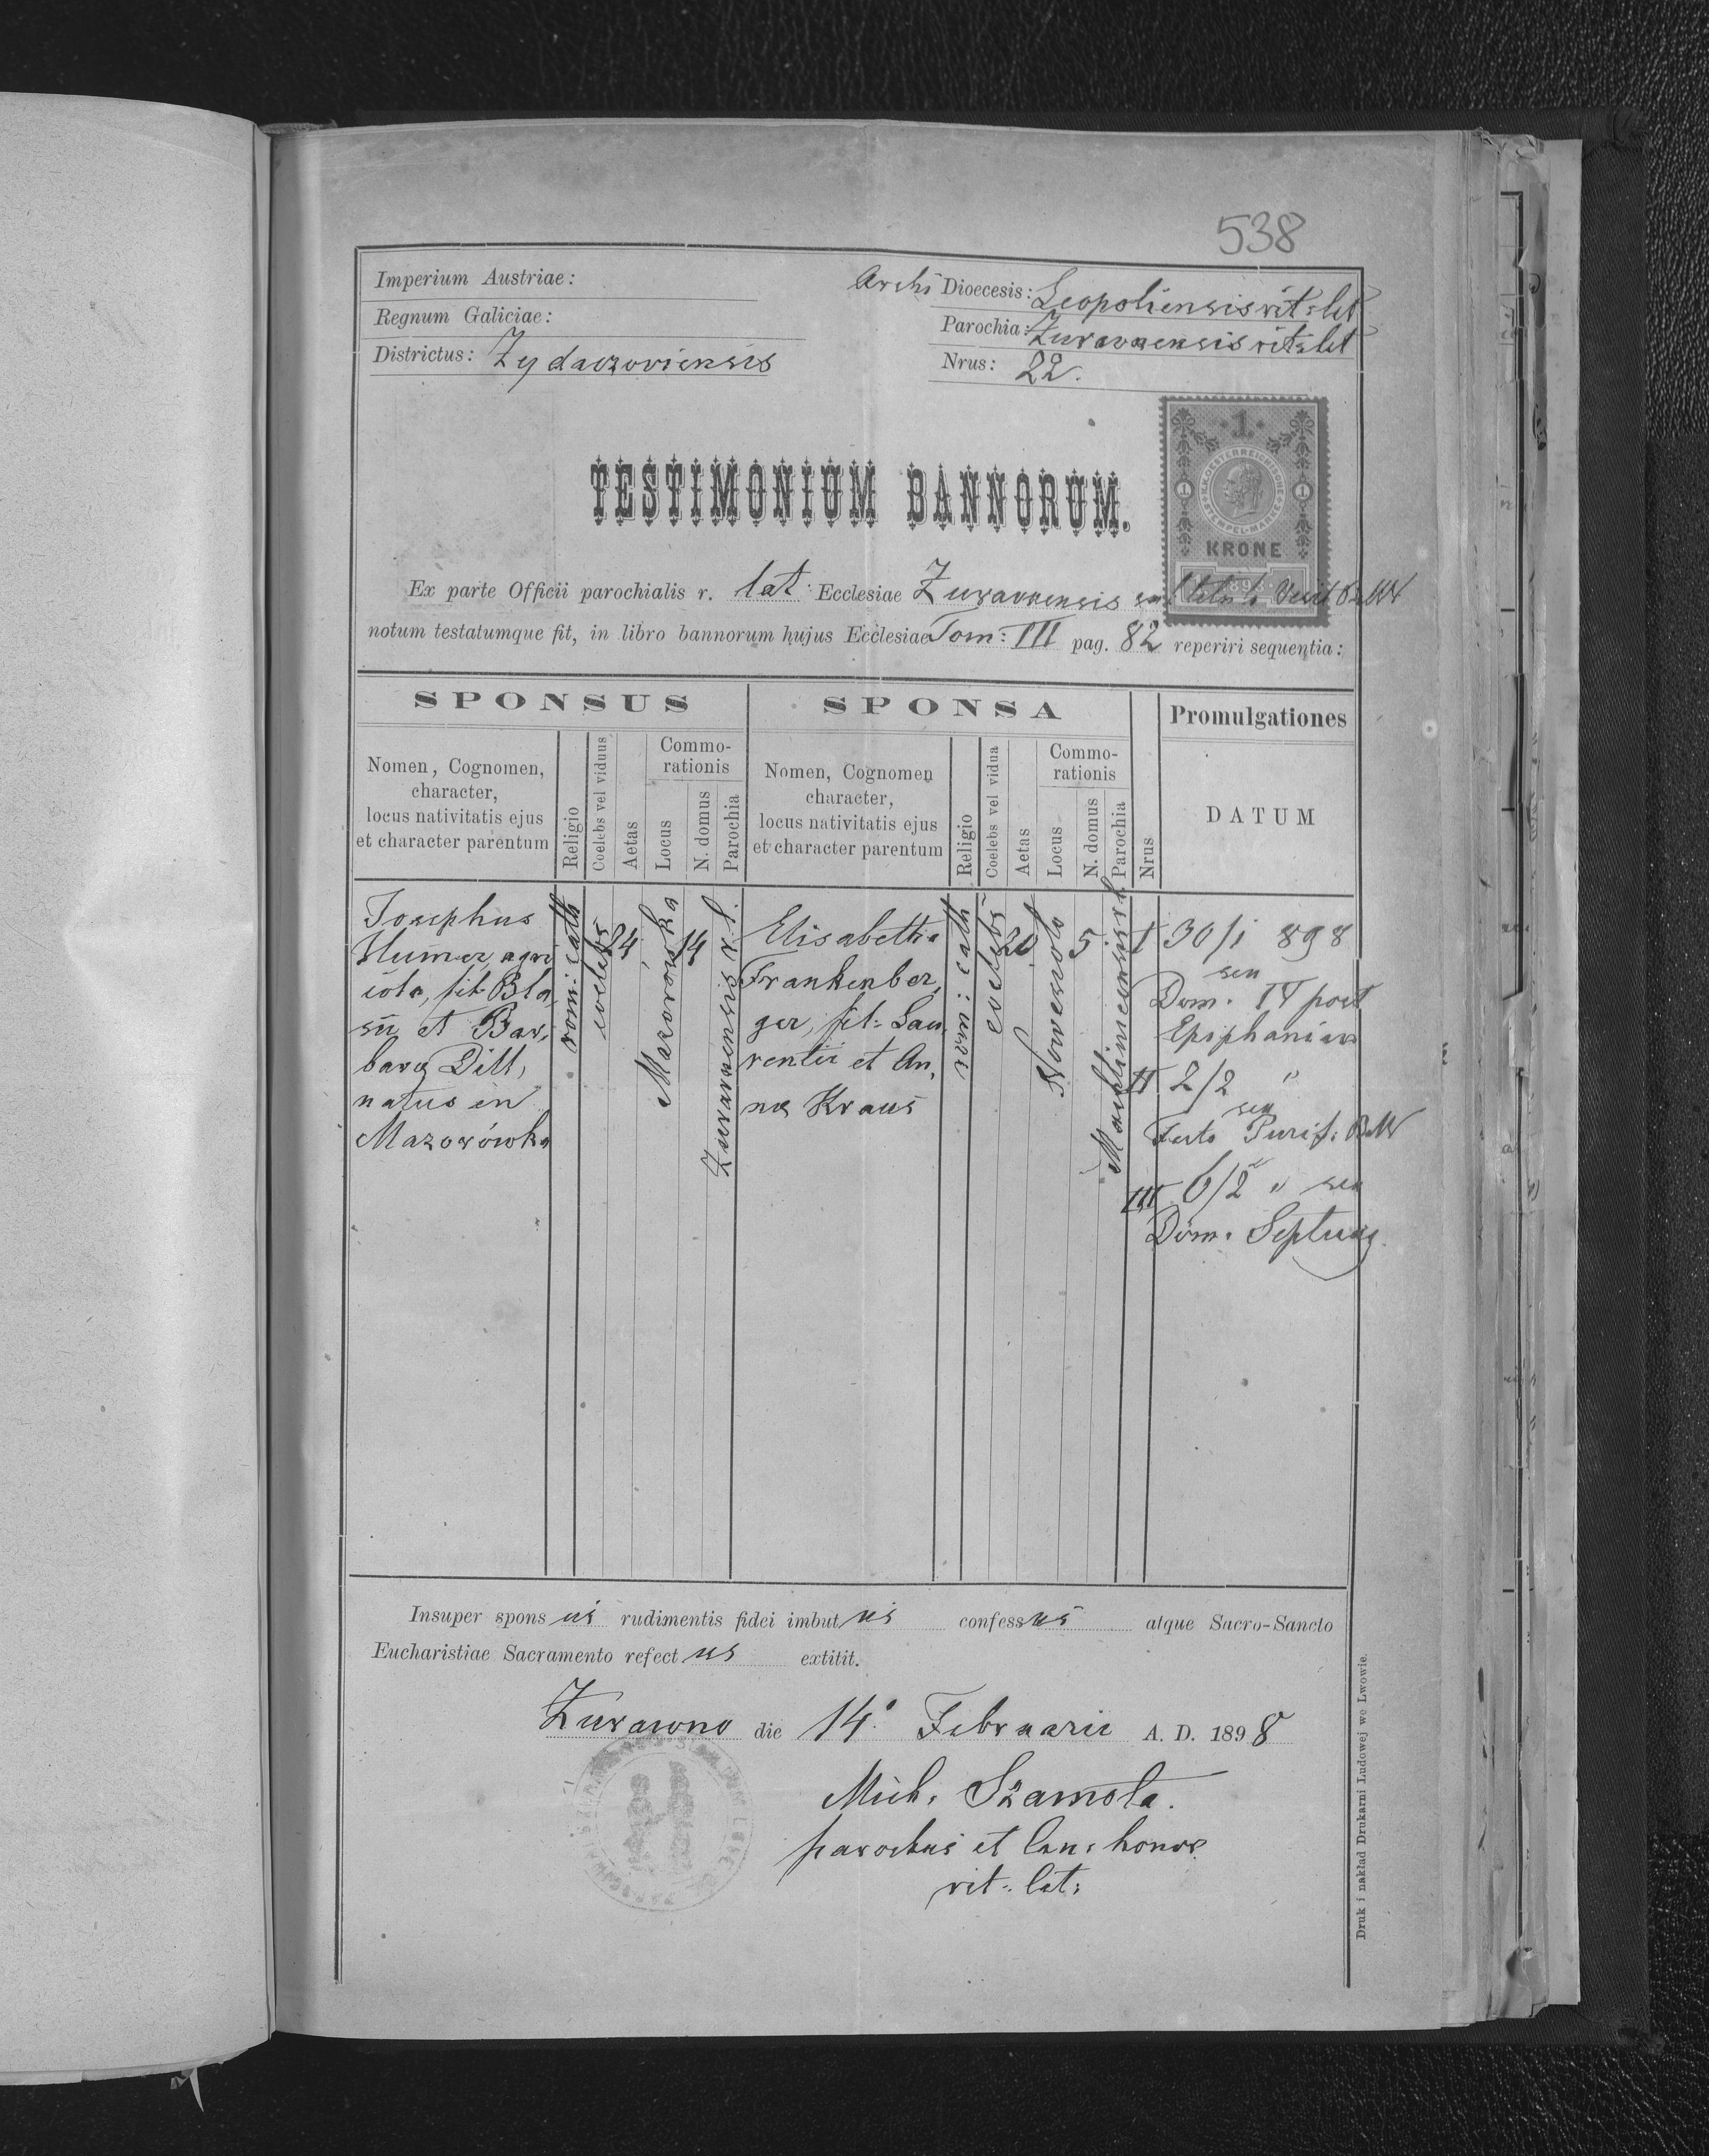 538
Imperium Austriae:
Regnum Galiciae:
Districtus: Zydaczoviensis
Archi Dioecesis: Leopoliensis rit: lat
Parochia: Zuravnensis rit: lat
Nrus: 22.
1
K.K. OESTERREICHISCHE STEMPEL-MARKE
1 1
KRONE
1898
TESTIMONIUM BANNORUM.
Ex parte Officii parochialis r. lat: Ecclesiae Zuravnensis sub titulo Visit B.MV
notum testatumque fit, in libro bannorum hujus Ecclesiae Tom: III pag. 82 reperiri sequentia:
SPONSUS
SPONSA
Promulgationes
Nomen, Cognomen,
character,
locus nativitatis ejus
et character parentum
Religio
Coelebs vel viduus
Aetas
Commo-
rationis
Locus
N. domus
Parochia
Nomen, Cognomen
character,
locus nativitatis ejus
et character parentum
Religio
Coelebs vel vidua
Aetas
Commo-
rationis
Locus
N. domus
Parochia
Nrus
DATUM
Josephus
Humer, agri
cola, fil. Bla
sii et Bar,
barę Dill,
natus in
Mazorówka
rom: cath
coelebs
24
Mazorówka
14
Zuravnensis r. l.
Elisabetha
Frankenber,
ger, fil: Lau,
rentii et An,
nę Kraus
rom: cath
coelebs
20
Nowesioło
5
I 30/1 898
seu
Dom. IV post
Epiphaniam
II 2/2 "
seu
Festo Purif: B.MV
III 6/2 " seu
Dom. Septuag.
Insuper spons us rudimentis fidei imbut us confess us atque Sacro-Sancto
Eucharistiae Sacramento refect us extitit.
Zurawno die 14. Februarii A. D. 1898
Mich. Szamota.
parochus et Can: honor.
rit: lat:
Druk i nakład Drukarni Ludowej we Lwowie.